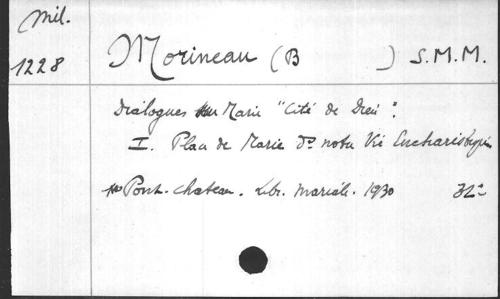 Mil.
1228
Morineau (B ) S.M.M.
Dialogues sur Marie "Cité de Dieu".
I. Place de Marie ds notre Vie Eucharistique
Pont-Chateau. Libr. Mariale. 1930 32°